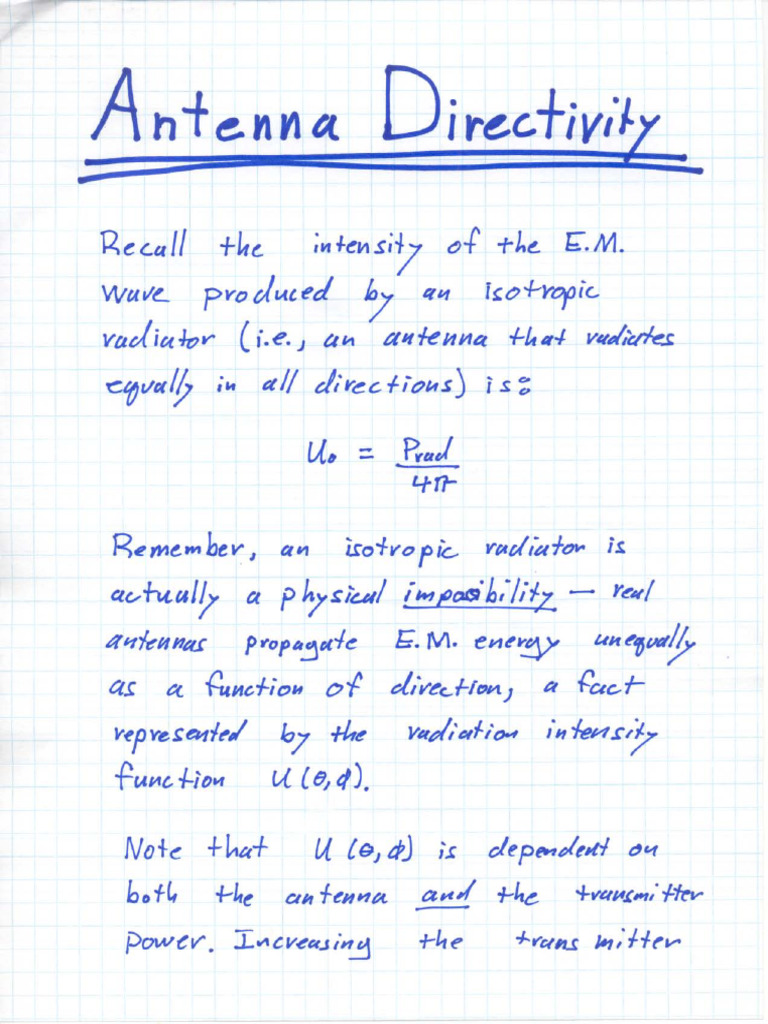 Antenna Directivity
Recall the intensity of the E.M.
wave produced by an isotropic
radiator (i.e., an antenna that radiates
equally in all directions) is:
U₀ = Prad / 4π
Remember, an isotropic radiator is
actually a physical impossibility – real
antennas propagate E.M. energy unequally
as a function of direction, a fact
represented by the radiation intensity
function U(θ,ϕ).
Note that U(θ,ϕ) is dependent on
both the antenna and the transmitter
power. Increasing the transmitter